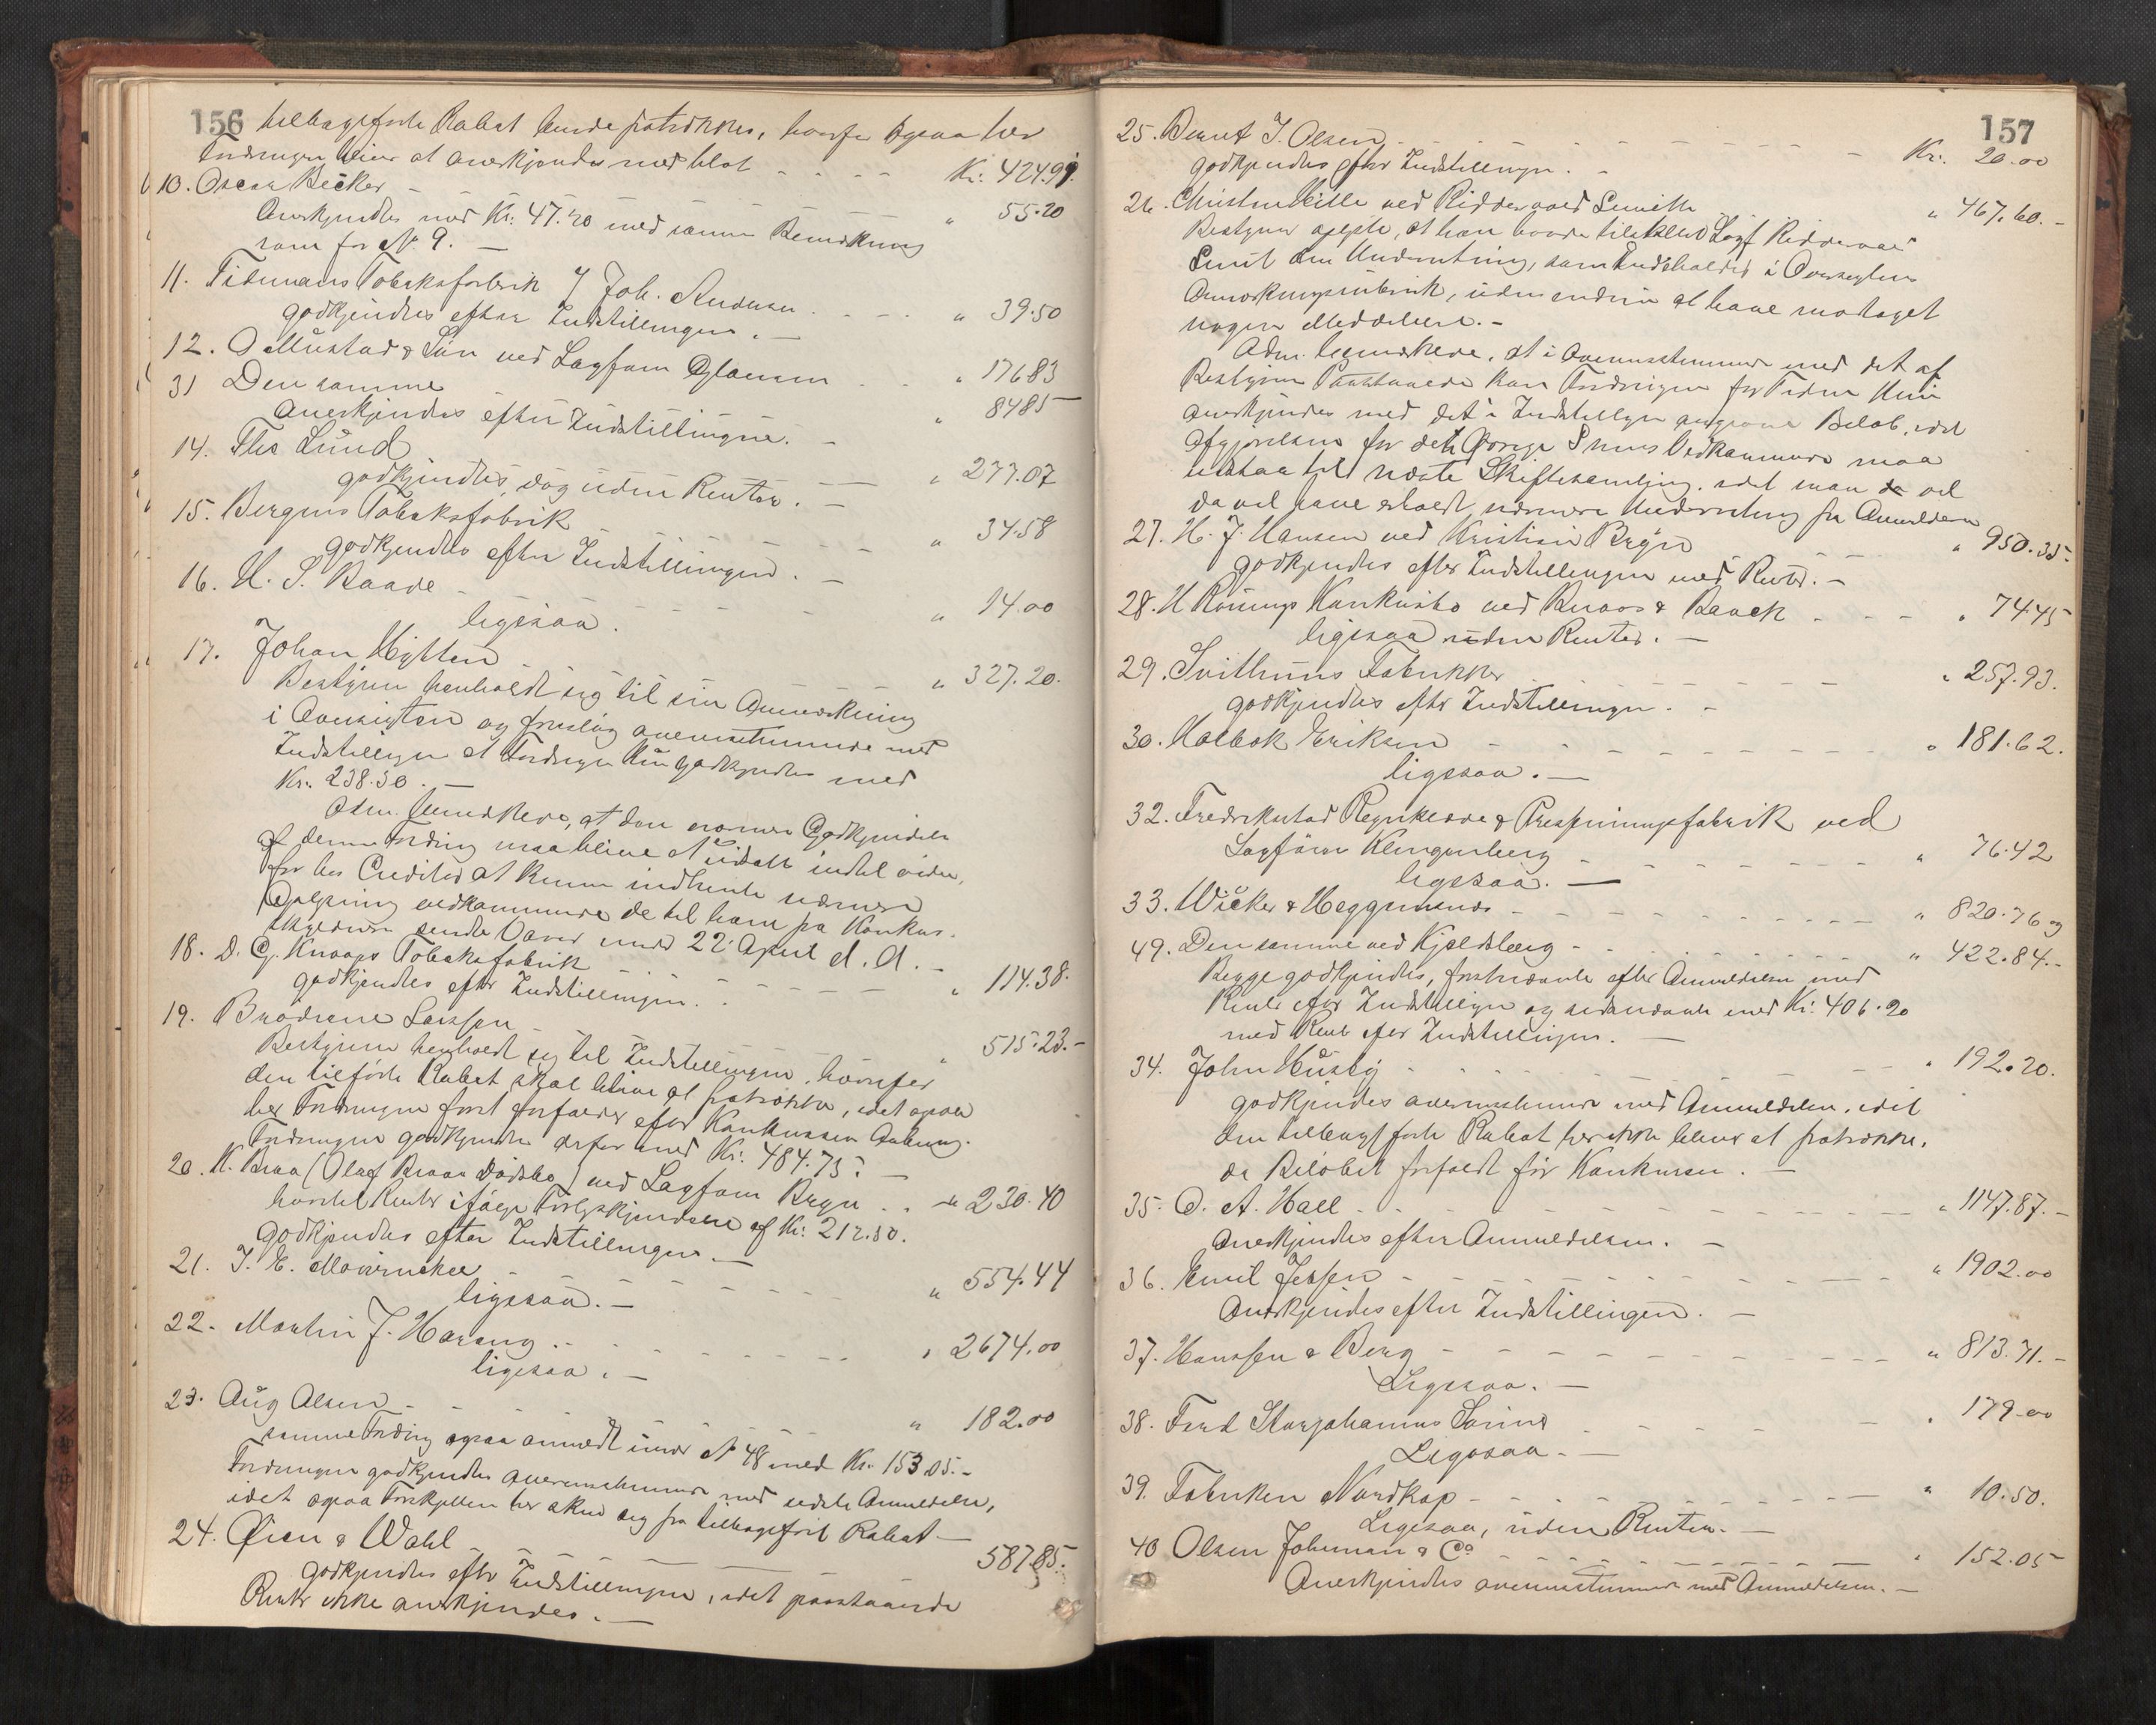 156
tilbageførte Rabat burde fratrækkes, hvorfor ogsaa her
Fordringen bliver at anerkjende med blot - - - - Kr: 424.99.
10. Oscar Becker - - - - " 55.20
Anerkjendes med Kr: 47.20 med samme Bemærkning
som for No 9. -
11. Tidemans Tobaksfabrik v/ Joh. Andersen . - - - " 39.50
godkjendtes efter Indstillingen. -
12. O Mustad & Søn ved Sagfører . . " 176.83
31 Den samme " 84.85
anerkjendes efter Indstillingerne. -
14. Ths Lund - - - " 277.07
godkjendtes, dog uden Renter. -
15. Bergens Tobaksfabrik - - - " 34.58
godkjendtes efter Indstillingen. -
16. H. S. Baade - - - " 14.00
ligesaa.
17. Johan Hytten - - - " 327.20.
Bestyreren henholdt sig til sin Anmærkning
i Oversigten og foreslog overensstemmende med
Indstillingen at Fordringen kun godkjendtes med
Kr: 238.30. -
Adm. bemærkede, at den nærmere Godkjendelse
af denne Fordring maa blive at udsætte indtil videre,
for hos Creditor at kunne indhente nærmere
Oplysning vedkommende de til ham fra Konkurs-
sendte Varer under 22 April d. A. -
18. D. Cj. Knoops Tobaksfabrik - - - " 114.38.
godkjendtes efter Indstillingen.
19. Brødrene Larssen - - - " 515.23.-
Bestyreren henholdt sig til Indstillingen, hvorefter
den tilførte Rabat skal blive at fratrække, idet ogsaa
her Fordringen først forfalder efter Konkursens Aabning.
Fordringen godkjendes derfor med Kr: 484.75. -
20. K. Braa (Olaf Braas Dødsbo) ved Sagfører Bryn . . " 230.40
hvortil Renter ifølge Forligskjendelse af Kr: 212.50.
godkjendtes efter Indstillingen. -
21. J. E. Mowinckel - - - " 554.44
ligesaa. -
22. Martin J. Harang - - - " 2674.00
ligesaa. -
23. Aug Olsen - - - " 182.00
samme Fordring ogsaa anmeldt under No 48 med Kr. 153.05.-
Fordringen godkjendes overensstemmende med sidste Anmeldelse,
idet ogsaa Forskjellen her skriver sig fra tilbageført Rabat -
24. Øien & Wahl - - - 587.85.
godkjendtes efter Indstillingen, idet paastaaende
Renter ikke anerkjendes. -
157
25. Bernt J. Olsen - - - Kr: 20.00
godkjendtes efter Indstillingen. -
26. Christen Hille ved Riddervold Smith " 467.60.-
Bestyreren oplyste, at han havde tilskrevet Sagf Riddervold
Smit den Underretning, som indeholdes i Oversigtens
Anmærkningsrubrik, uden endnu at have modtaget
nogen Meddelelse.-
Adm. bemærkede, at i Overensstemmelse med det af
Bestyreren Paastaaede kan Fordringen for Tiden kun
anerkjendes med det i Indstillingen angivne Beløb, idet
Afgjørelsen for det Øvrige Vedkommende maa
udstaa til næste Skiftesamling, idet man da vil
da vil have erholdt nærmere Underretning fra Anmelderen
27. H. J. Hansen ved Kristian Bryn - - " 950.35.
godkjendtes efter Indstillingen med Renter. -
28. H Rønnings Konkursbo ved Knoos & Baack . - - " 74.45
ligesaa uden Renter. -
29. Svithuns Fabrikker - - - " 257.93.
godkjendtes efter Indstillingen. -
30. Holbæk Eriksen - - - " 181.62.
ligesaa. -
32. Fredrikstad Røgnkleve & Presseningsfabrik ved
Sagfører Klingenberg - - - " 76.42
ligesaa. -
33. Wicker & Heggemsnes - - - " 820.76 og
49. Den samme ved Kjeldsberg - - - " 422.84.-
Begge godkjendtes, førstnævnte efter Anmeldelsen med
Renter efter Indstillingen og sidstnævnte med Kr: 406.20
med Rente efter Indstillingen. -
34. John Husby - - - " 192.20.
godkjendes overensstemmende med Anmeldelsen, idet
den tilbageførte Rabat her ikke bliver at fratrække,
da Beløbet forfaldt før Konkursen. -
35. O. A. Hall - - - " 1147.87.-
anerkjendtes efter Anmeldelsen. -
36. Emil Jessen - - - " 1902.00
Anerkjendes efter Indstillingen. -
37. Hanssen & Berg - - - " 813.71.-
Ligesaa. -
38. Ferd Storjohanns Sønner - - - " 179.00
Ligesaa. -
39. Fabriken Nordkap - - - " 10.50.
Ligesaa, uden Renter. -
40 Olsen Johnman & Co - - - " 152.05
Anerkjendes overensstemmende med Anmeldelsen. -